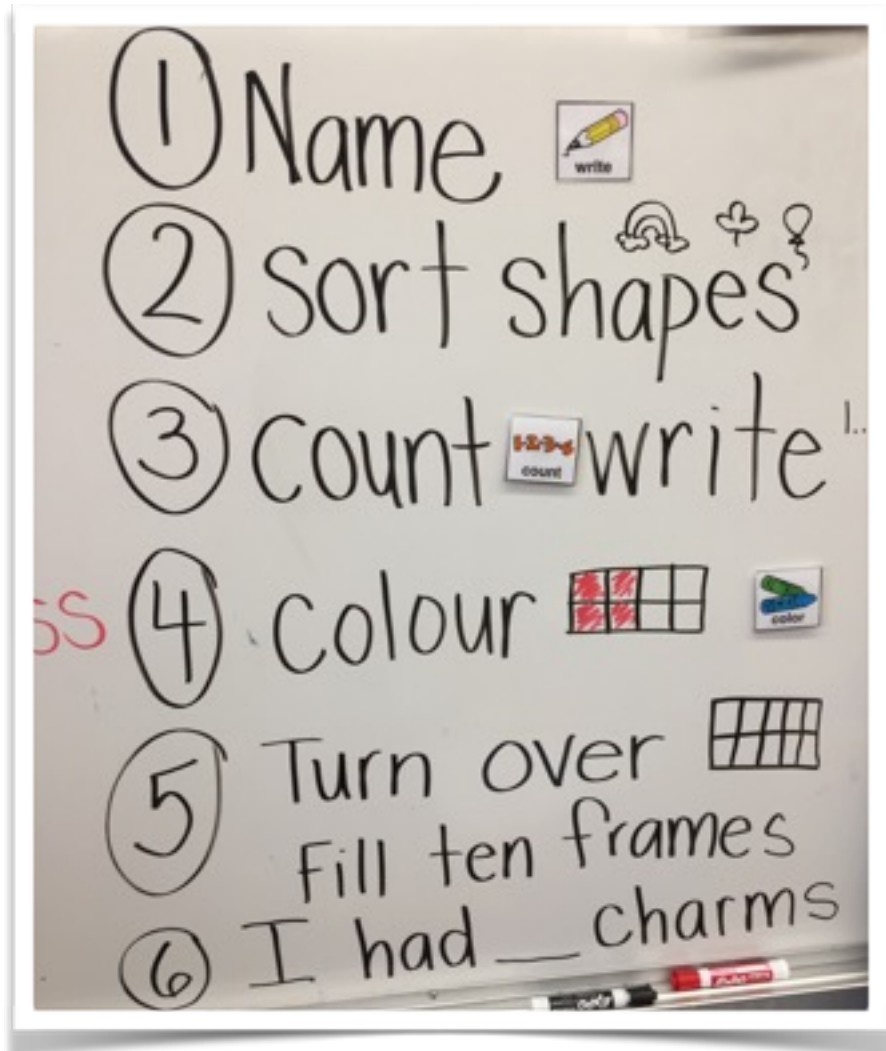 1 Name
write
2 Sort shapes
3 Count 1-2-3-4 count write 1..
ss 4 Colour color
5 Turn over
Fill ten frames
6 I had __ charms